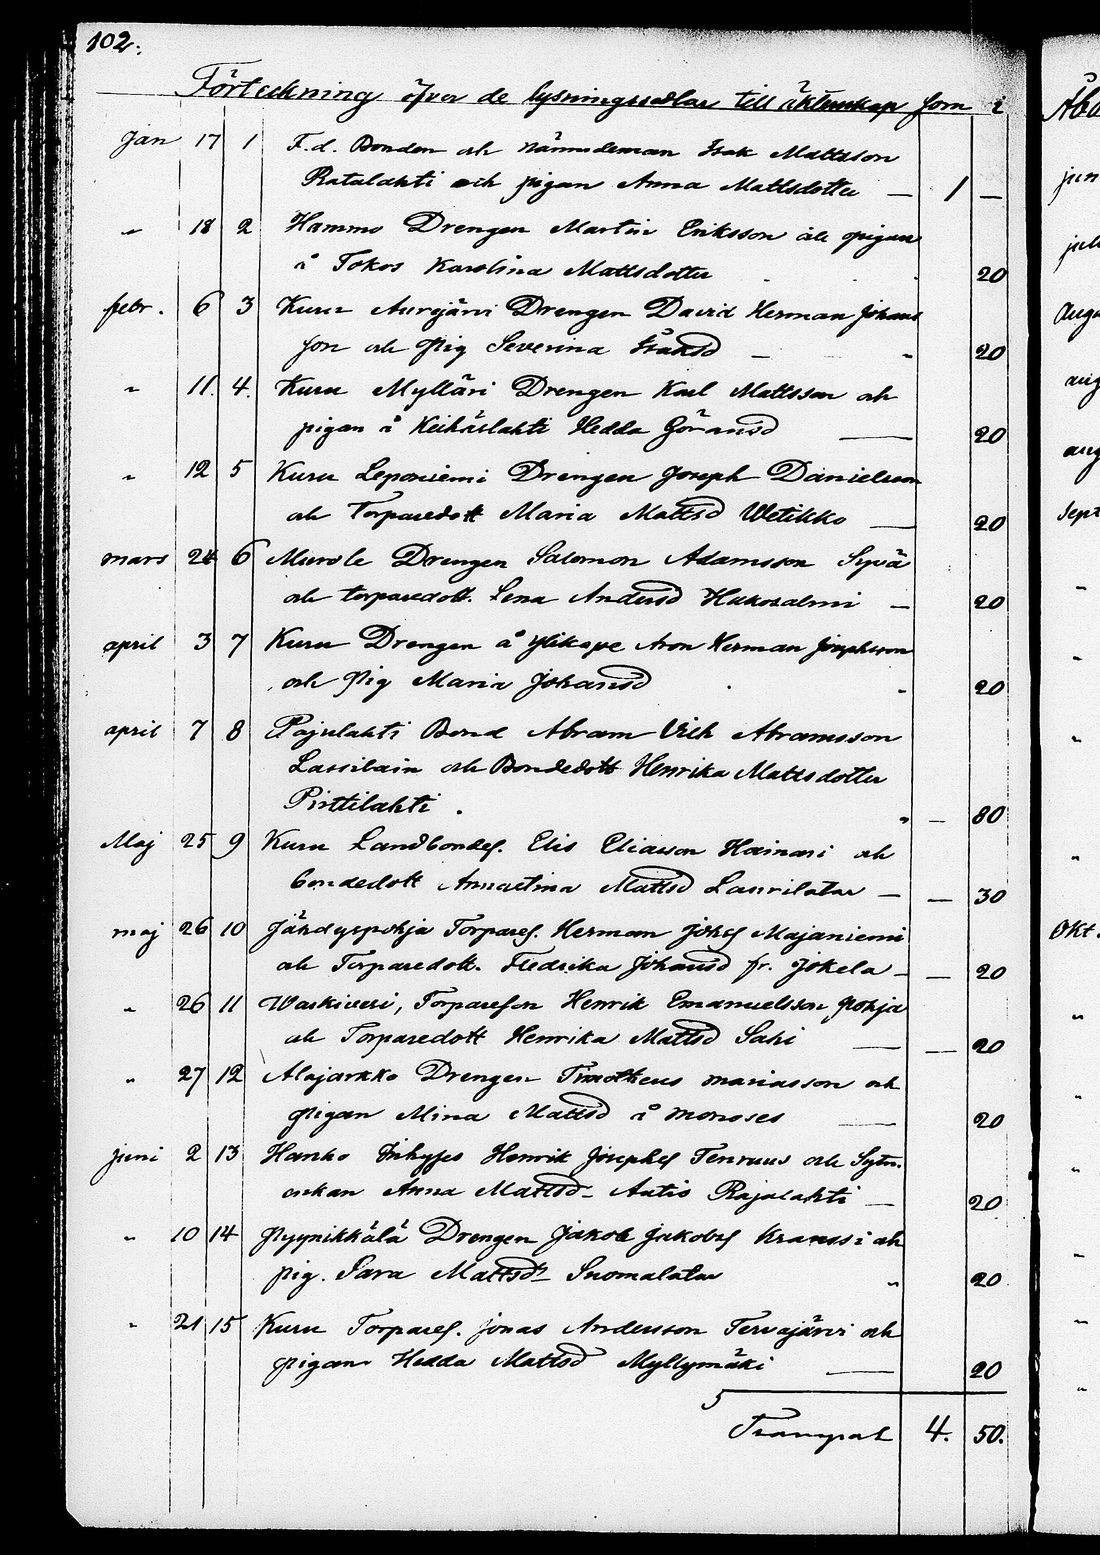 102.
Förteckning öfver de lysningssedlar till äktenskap som i
Jan 17 1 F.d. Bonden och nämndeman Isak Mattsson
Ratalahti och pigan Anna Mattsdotter — 1 —
" 18 2 Hammo Drengen Martin Eriksson och pigan
å Tokos Karolina Mattsdotter 20
febr. 6 3 Kuru Aurejärvi Drengen David Herman Johans
son och Pig Severina Isaksd — " 20
" 11. 4. Kuru Mylläri Drengen Karl Mattsson och
pigan å Keihäslahti Hedda Göransd — 20
" 12 5 Kuru Leponiemi Drengen Joseph Danielsson
och Torparedott Maria Mattsd Wetikko — 20
mars 24 6 Murole Drengen Salomon Adamsson Syvä
och torparedott. Lena Andersd Hukosalmi — 20
april 3 7 Kuru Drengen å Aron Herman Josephsson
och Pig Maria Johansd " 20
april 7 8 Pajulahti Bond Abram Vilh Abramsson
Lassilain och Bondedott Henrika Mattsdotter
Pirttilahti . " — 80
Maj 25 9 Kuru Landbondes. Elis Eliasson Hainari och
bondedott Annastina Mattsd Laurilatar — — 30
maj 26 10 Torpares. Herman Johs Majaniemi
och Torparedott. Fredrika Johansd fr. Jokela — — 20
" 26 11 Waskivesi, Torpareson Henrik Emanuelsson Pohja
och Torparedott Henrika Mattsd Sahi — — 20
" 27 12 Alajarkko Drengen Timotheus mariasson och
pigan Mina Mattsd å monoses — 20
juni 2 13 Hanho Inhyses Henrik Josephs och
enkan Anna Mattsd Antis Rajalahti — 20
" 10 14 Pyynikkälä Drengen Jakob Jakobs Kranssi och
pig. Sara Mattsd Suomalatar " 20
" 21 15 Kuru Torpares. Jonas Andersson Tervajärvi och
pigan Hedda Mattsd Myllymäki — 20
Transport 4. 50.
Åbo
jun
juli
augu
aug
aug
Sept
"
"
"
"
Okt.
"
"
"
"
"
"